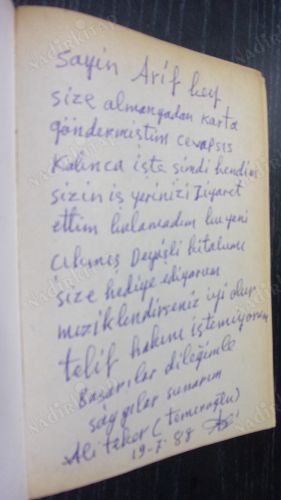 Sayin Arif bey
size almanyadan karta
göndermiştim cevapsıs
kalınca işte şimdi kendim
sizin iş yerinizi Ziyaret
ettim bulamadım bu yeni
çıkmış Deyişli kitabımı
size hediye ediyorum
müziklendirseniz iyi olur
telif hakını istemiyorum
Başarılar dileğimle
saygılar sunarım
Ali (Temeroğlu)
19-7-88